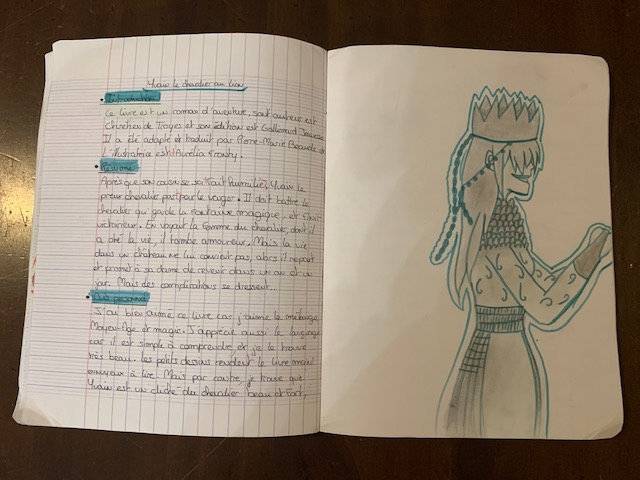 Yvain le chevalier au lion
• Introduction
Ce livre est un roman d'aventure, son auteur est
Chrétien de Troyes et son édition est Gallimard Jeunesse.
Il a été adapté et traduit par Pierre-Marie Beaude et
l'illustratrice est Aurélia Fronty.
• Résumé
Après que son cousin se soit fait humilié, Yvain le
preux chevalier part pour le venger. Il doit battre le
chevalier qui garde la fontaine magique, et finit
victorieux. En voyant la femme du chevalier, dont il
a ôté la vie, il tombe amoureux. Mais la vie
dans un château ne lui convient pas, alors il repart
et promet à sa dame de revenir dans un an et un
jour. Mais des complications se dressent...
• Avis personnel
J'ai bien aimé ce livre car j'aime le mélange
Moyen-Âge et magie. J'apprécie aussi le langage
car il est simple à comprendre et je le trouve
très beau. Les petits dessins rendent le livre moins
ennuyeux à lire! Mais par contre, je trouve que
Yvain est un cliché du chevalier beau et fort,